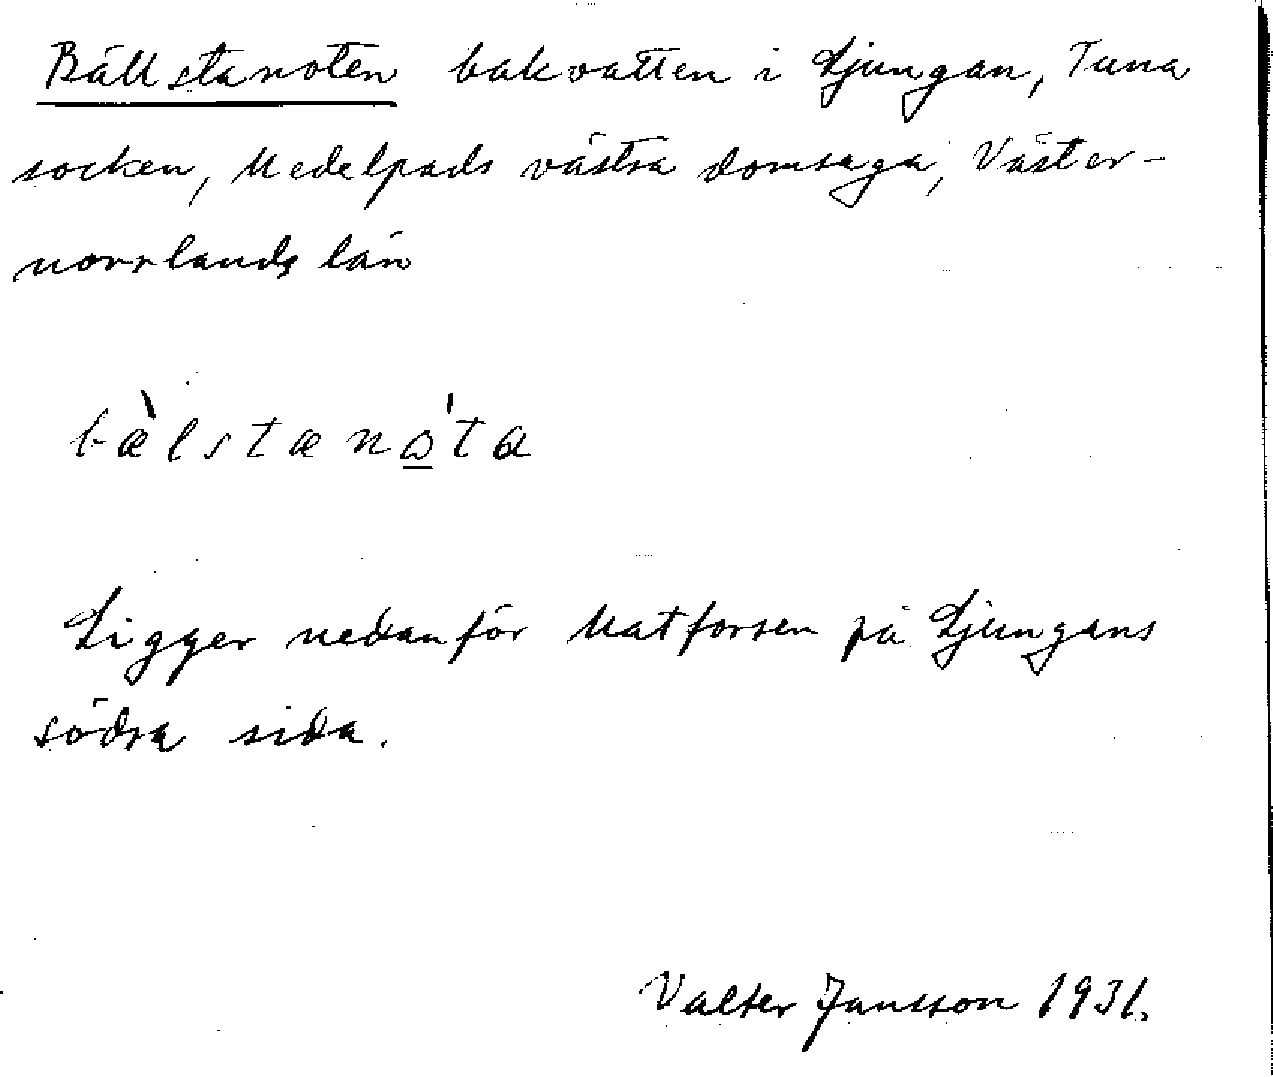 Bällstanoten bakvatten i Ljungan, Tuna
socken, Medelpads västra domsaga, Väster-
norrlands län
bæ̀lstæno̲'ta
Ligger nedanför Matforsen på Ljungans
södra sida.
Valter Jansson 1931.